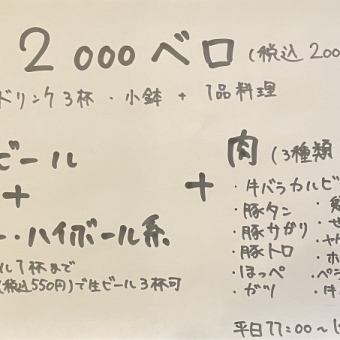 2000ベロ (税込 200
ドリンク3杯・小鉢 + 1品料理
ビール
+
ー・ハイボール系
ル1杯まで
(税込550円)で生ビール3杯可
+
肉 (3種類
・牛バラカルビ
・豚タン
・豚サガリ
・豚トロ
・ほっぺ
・ガツ
・せ
・ホ
・牛
平日17:00〜